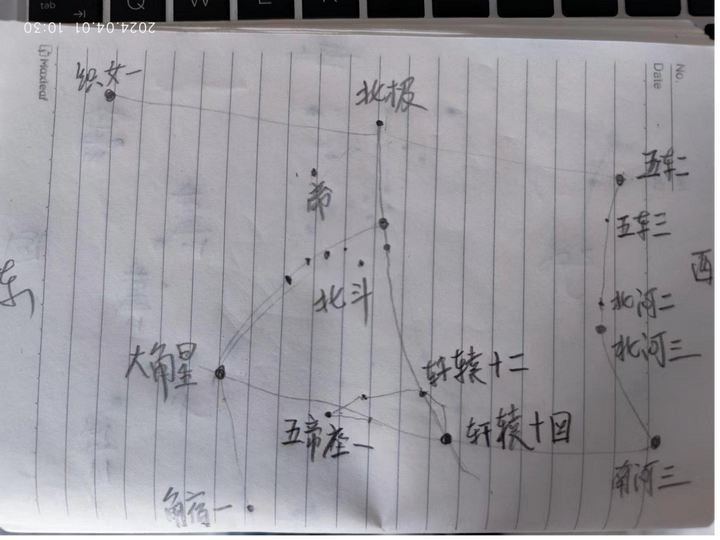 tab
Q
W
2024.04.01 10:30
Maxleaf
No.
Date
织女一
北极
五车二
帝
五车三
东
西
北斗
北河二
北河三
大角星
轩辕十二
五帝座一
轩辕十四
南河三
角宿一